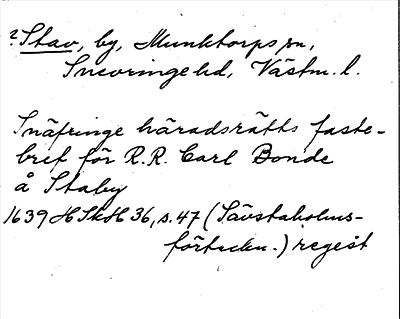 ?Stav, by, Munktorps sn,
Snevringe hd, Västm. l.
Snäfringe häradsrätts faste-
bref för R.R. Carl Bonde
å Staby
1639 HSkH 36, s. 47 (Säfstaholms-
förteckn.) regest